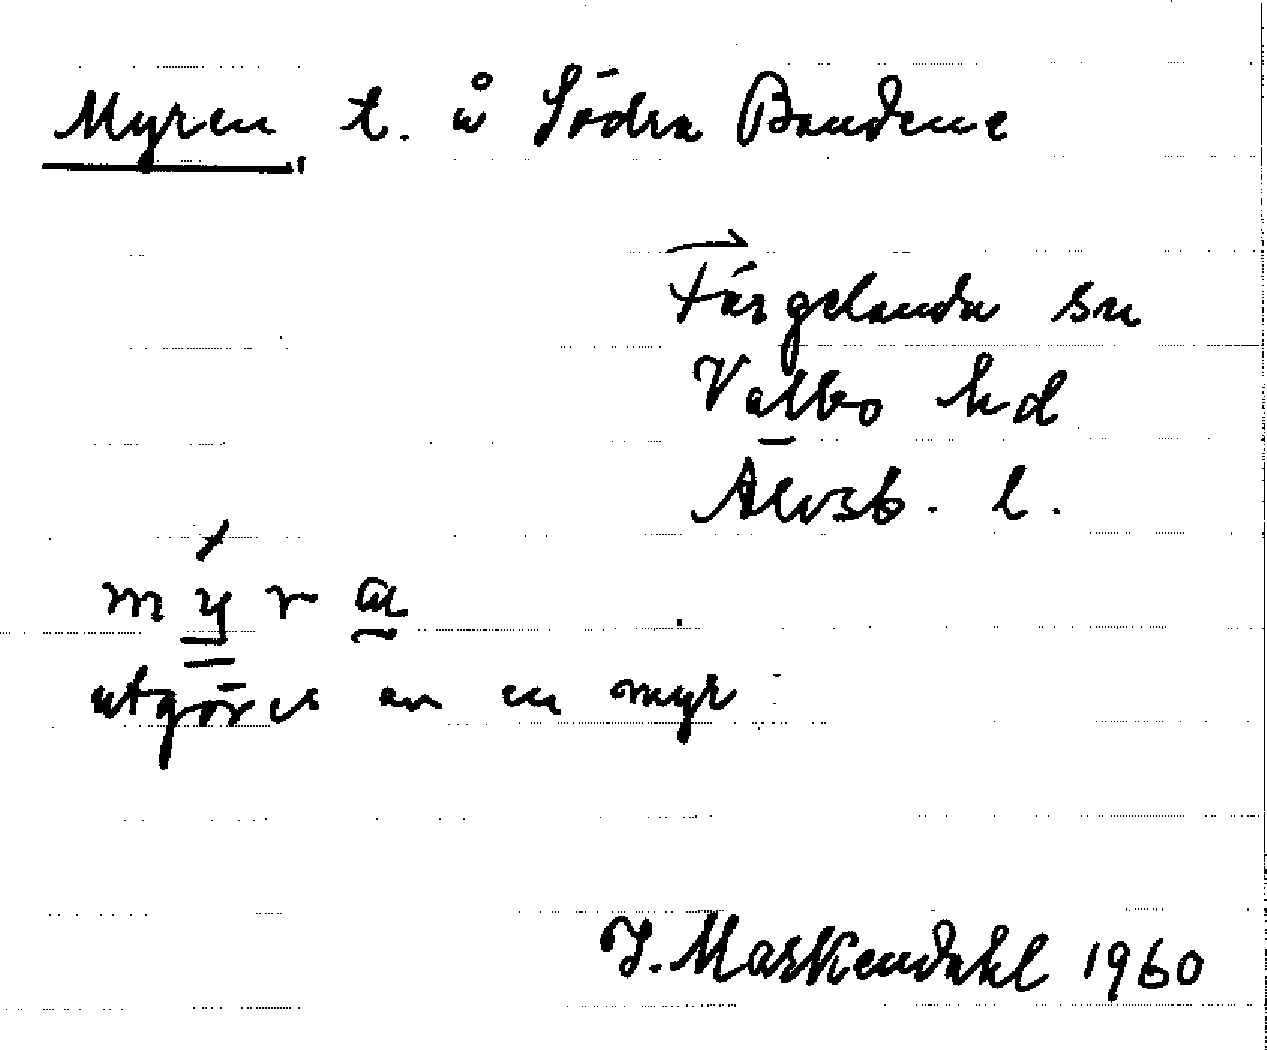 Myren t. å Södra Bandene
Färgelanda sn
Valbo hd
Älvsb. l.
m y r a
utgöres av en myr
J. Markendahl 1960